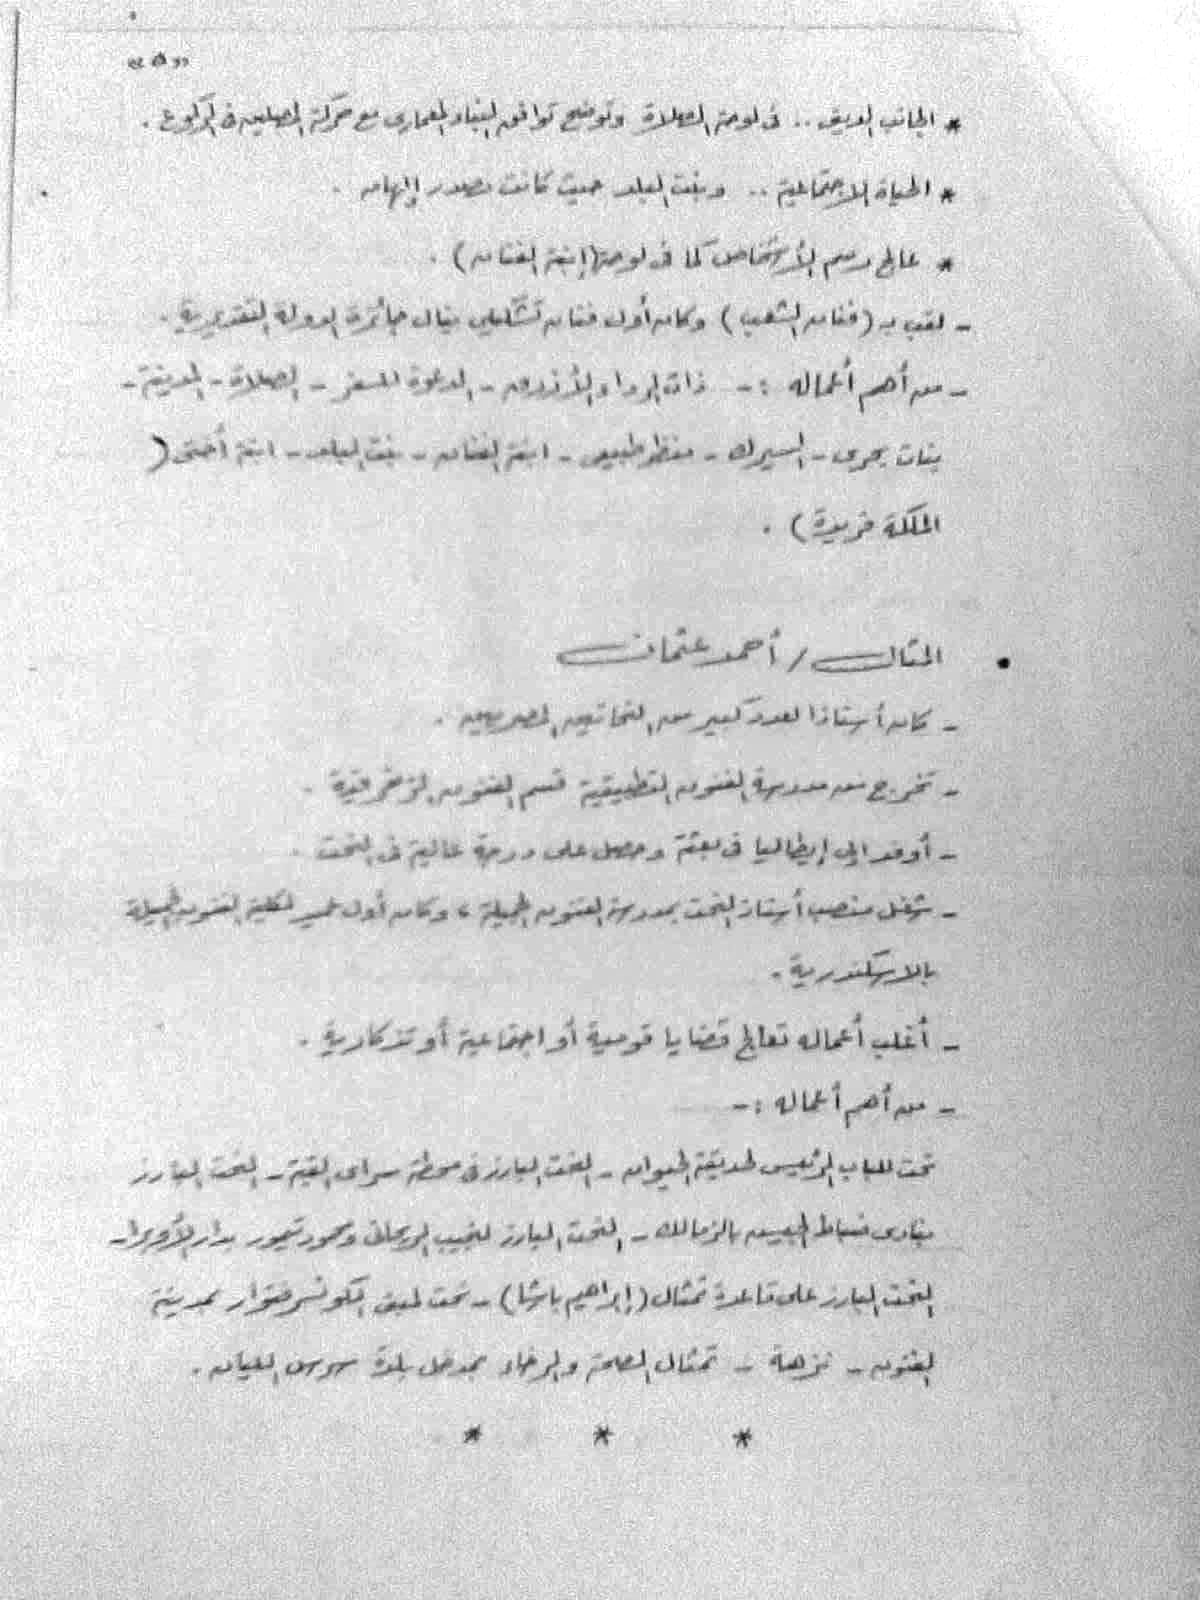 «٥»
* الجانب الدينى .. فى لوحة الصلاة وتوضح توافق البناء المعمارى مع حركة المصلين فى الركوع .
* الحياة الاجتماعية .. وبنت البلد حيث كانت مصدر إلهامه .
* عالج رسم الأشخاص كما فى لوحة (إبنة الفنان) .
- لقب بـ (فنان الشعب) وكان أول فنان تشكيلى ينال جائزة الدولة التقديرية .
- من أهم أعماله :- ذات الرداء الأزرق - الدعوة للسفر - الصلاة - المدينة -
بنات بحرى - السيرك - منظر طبيعى - ابنة الفنان - بنت البلد - ابنة أختى (
الملكة فريدة) .
• المثال / أحمد عثمان
- كان أستاذا لعدد كبير من النحاتين المصريين .
- تخرج من مدرسة الفنون التطبيقية قسم الفنون الزخرفية .
- أوفد إلى إيطاليا فى بعثة وحصل على درجة عالية فى النحت .
- شغل منصب أستاذ النحت بمدرسة الفنون الجميلة ، وكان أول عميد لكلية الفنون الجميلة
بالاسكندرية .
- أغلب أعماله تعالج قضايا قومية أو اجتماعية أو تذكارية .
- من أهم أعماله :-
نحت للباب الرئيسى لحديقة الحيوان - النحت البارز فى محطة سراى القبة - النحت البارز
بنادى ضباط الجيش بالزمالك - النحت البارز لنجيب الريحانى ومحمود تيمور بدار الأوبرا -
النحت البارز على قاعدة تمثال (إبراهيم باشا) - نحت لمبنى الكونسرفتوار بمدينة
الفنون - نزهة - تمثال الصحة والرخاء بمدخل بلدة سرس الليان .
* * *